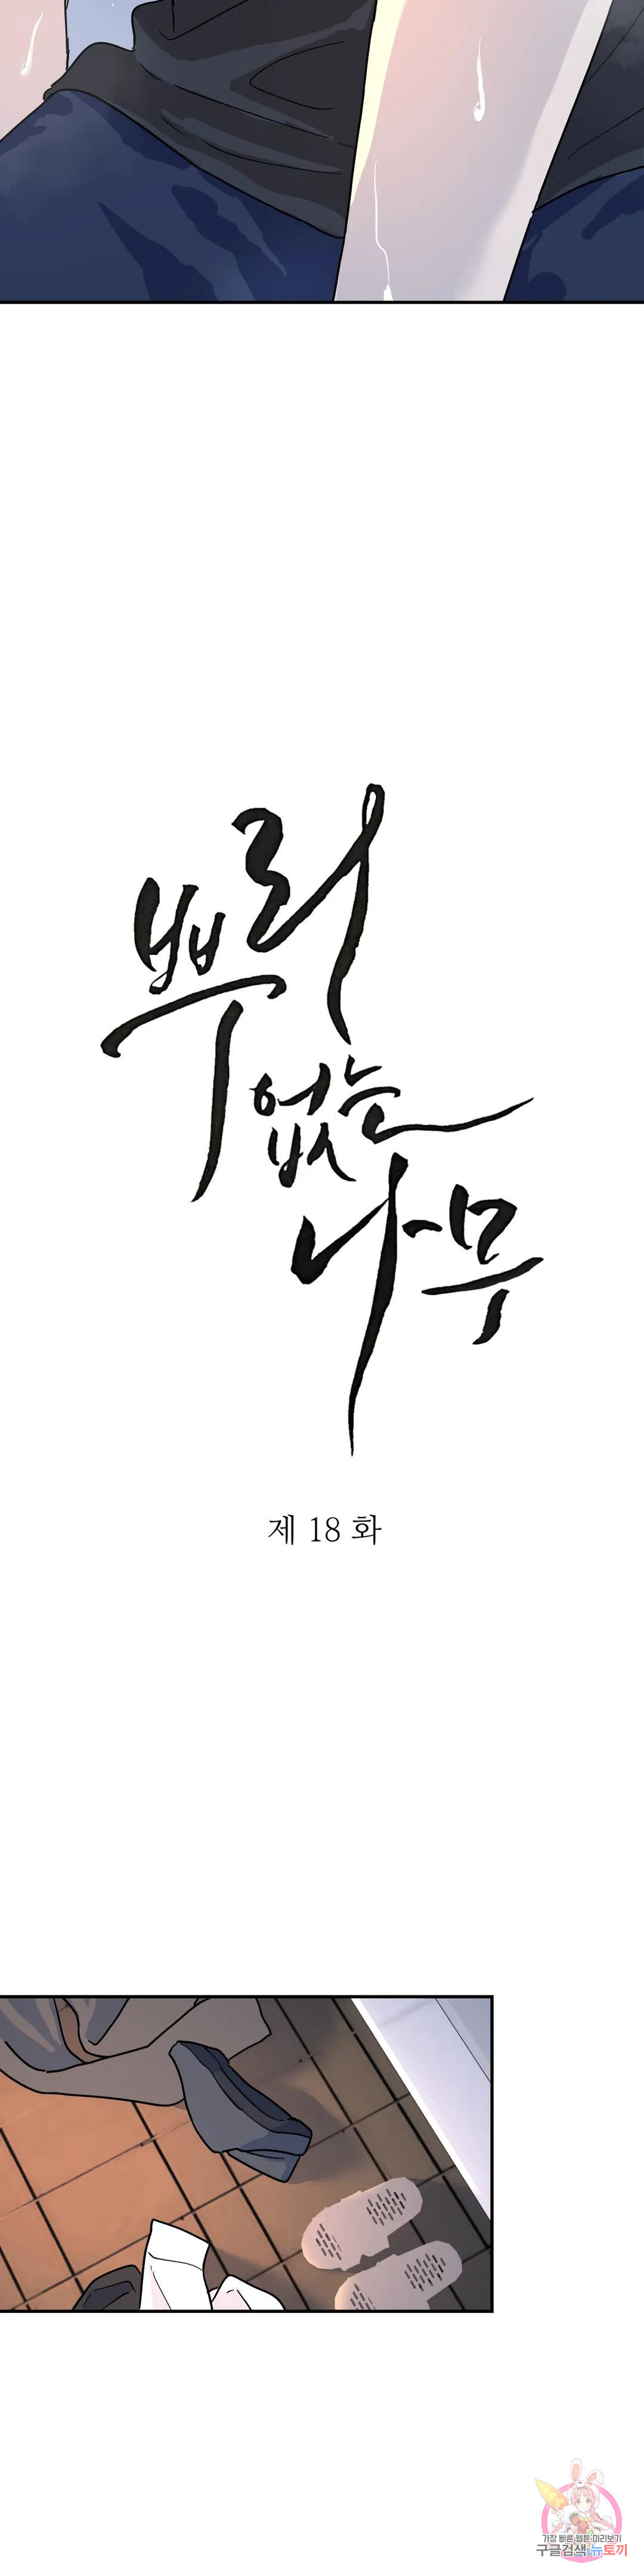 뿌리
없는
나무
제 18 화
가장 빠른 웹툰 미리보기
구글검색 뉴토끼